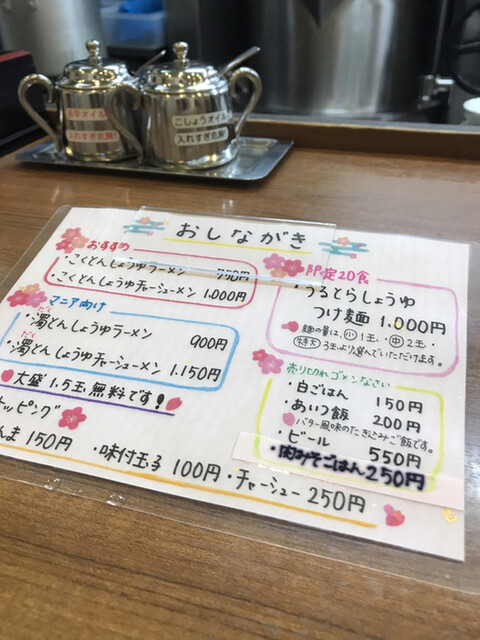 入れすぎ危険
こしょうオイル
入れすぎ危険
おしながき
おすすめ
・こくとんしょうゆラーメン 750円
・こくとんしょうゆチャーシューメン 1,000円
マニア向け
だく
・濁とんしょうゆラーメン 900円
だく
・濁とんしょうゆチャーシューメン 1,150円
大盛1.5玉無料です!
トッピング
んま 150円 ・味付玉子 100円 ・チャーシュー 250円
限定20食
・うるとらしょうゆ
つけ麺 1,000円
麺の量は、小1玉・中2玉・
特大3玉より選んでいただけます。
売り切れゴメンなさい
・白ごはん 150円
・あいつ飯 200円
バター風味のたき込みご飯です。
・ビール 550円
・肉みそごはん250円